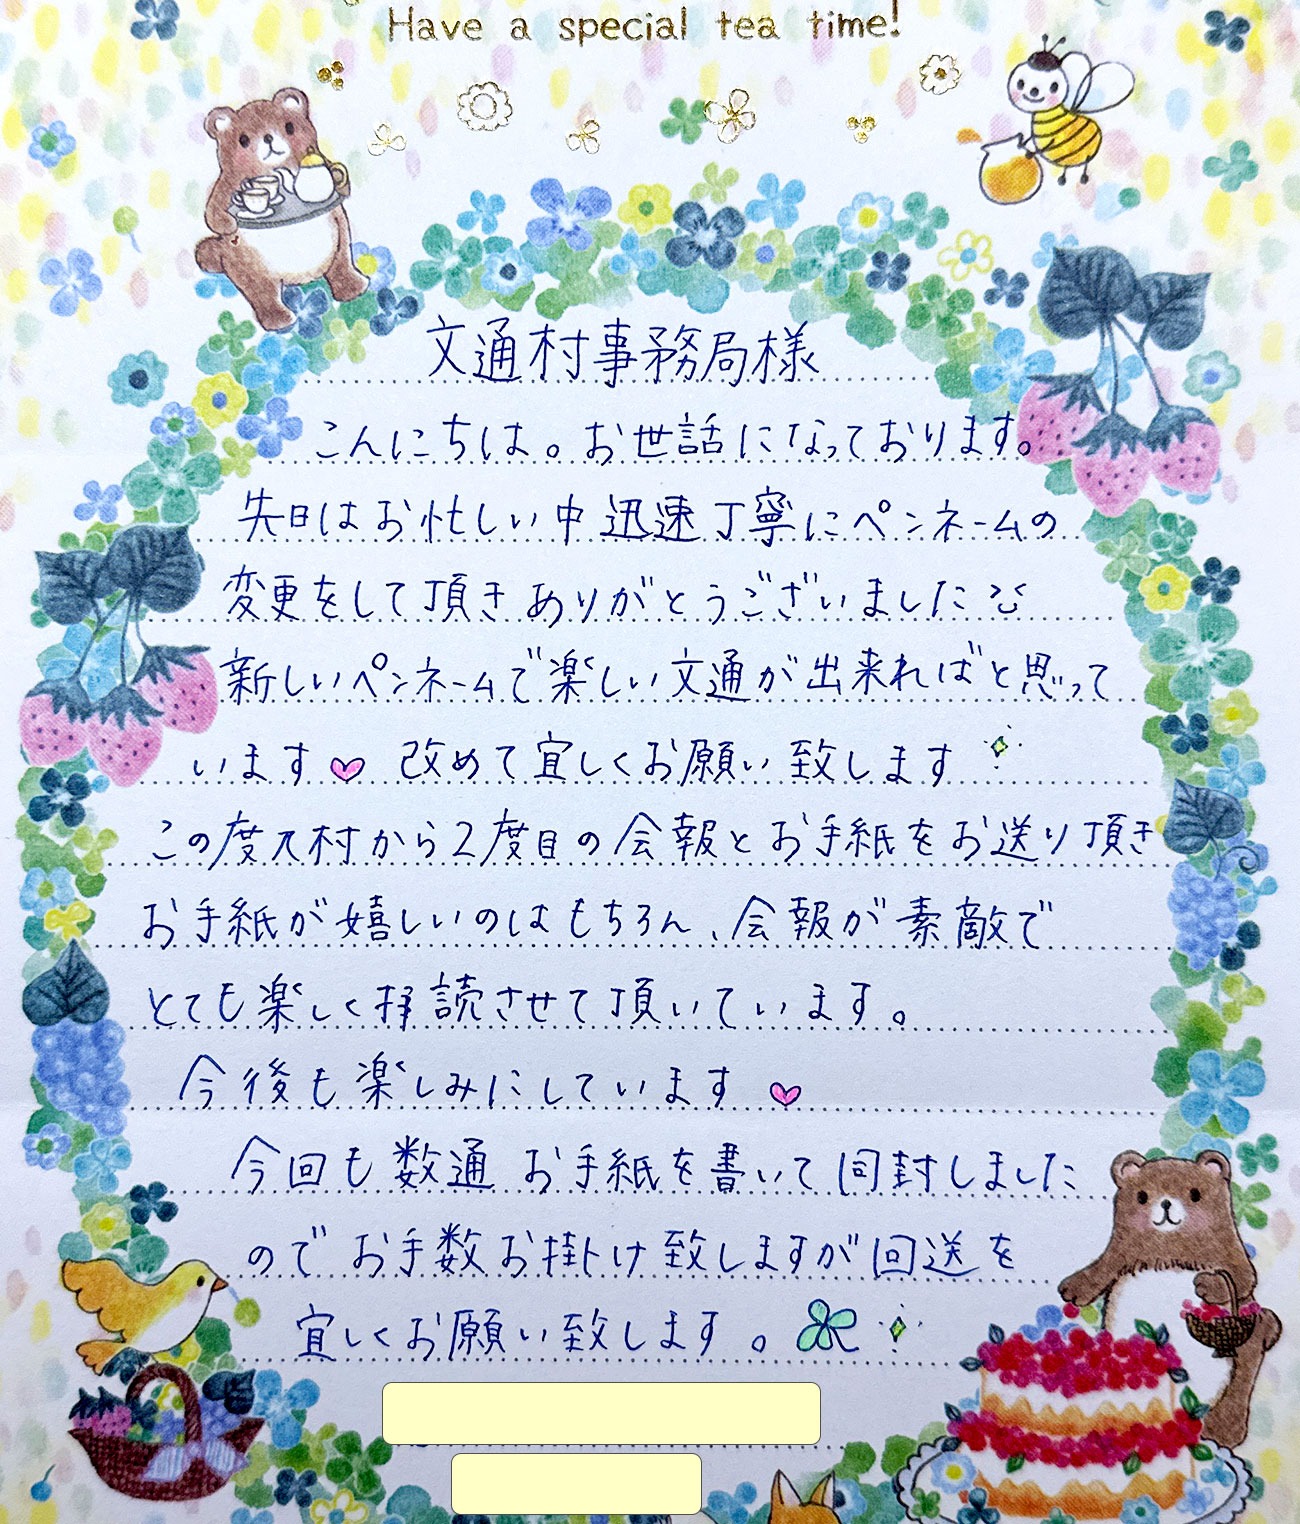 Have a special tea time!
文通村事務局様
こんにちは。お世話になっております。
先日はお忙しい中迅速丁寧にペンネームの
変更をして頂きありがとうございました
新しいペンネームで楽しい文通が出来ればと思って
います♡ 改めて宜しくお願い致します
この度文村から2度目の会報とお手紙をお送り頂き
お手紙が嬉しいのはもちろん、会報が素敵で
とても楽しく拝読させて頂いています。
今後も楽しみにしています♡
今回も数通お手紙を書いて同封しました
のでお手数お掛け致しますが回送を
宜しくお願い致します。